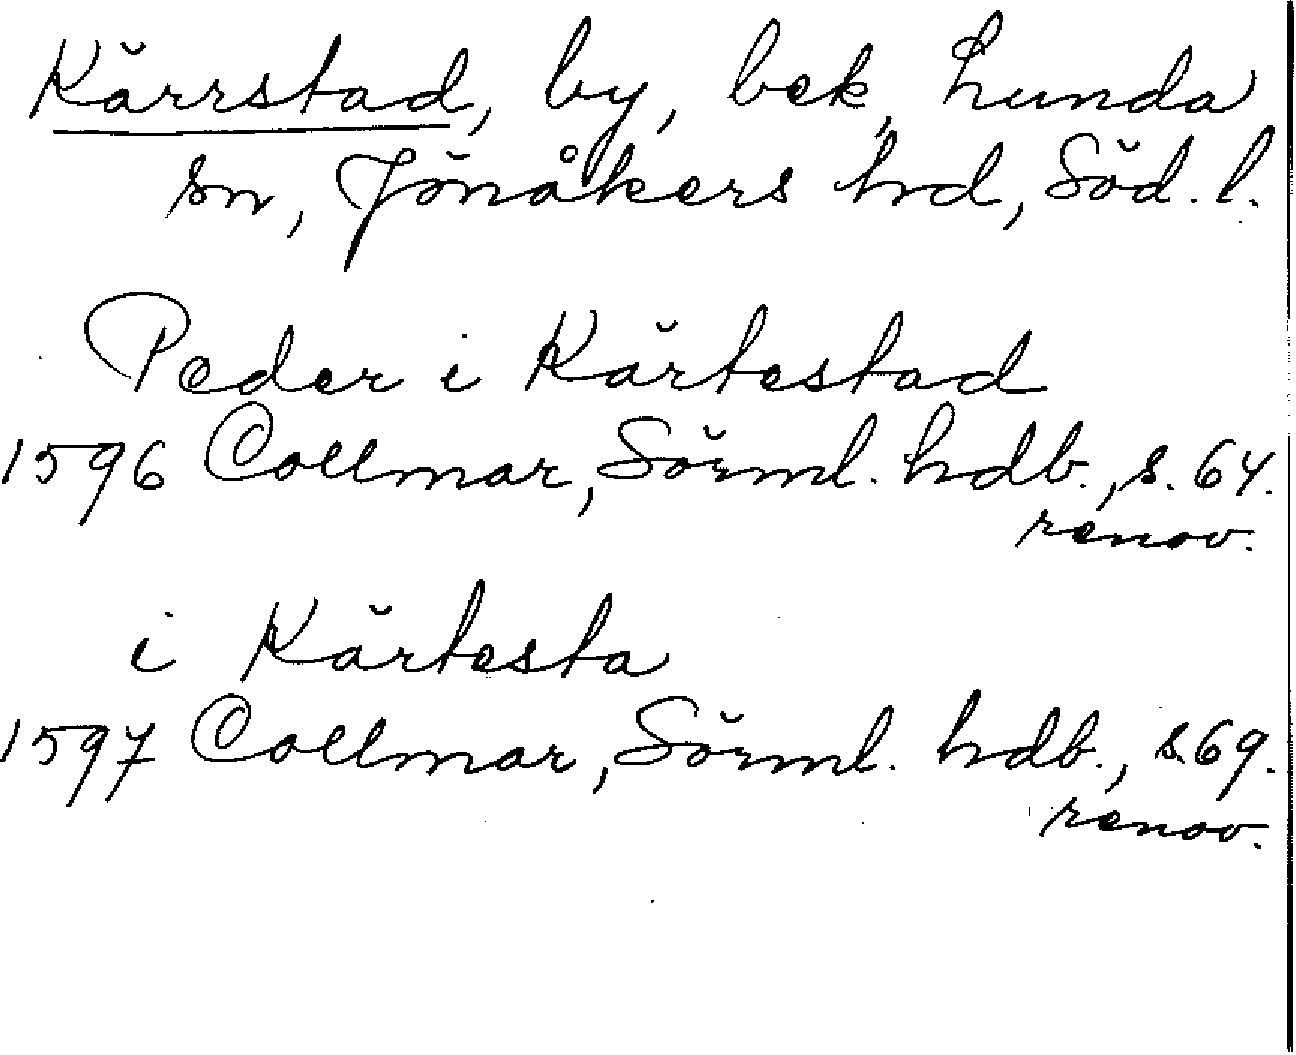 Kärrstad, by, bek, Lunda
sn, Jönåkers hd, Söd. l.
Peder i Kärtestad
1596 Collmar, Sörml. hdb., s. 64.
renov.
i Kärtesta
1597 Collmar, Sörml. hdb., s. 69.
renov.